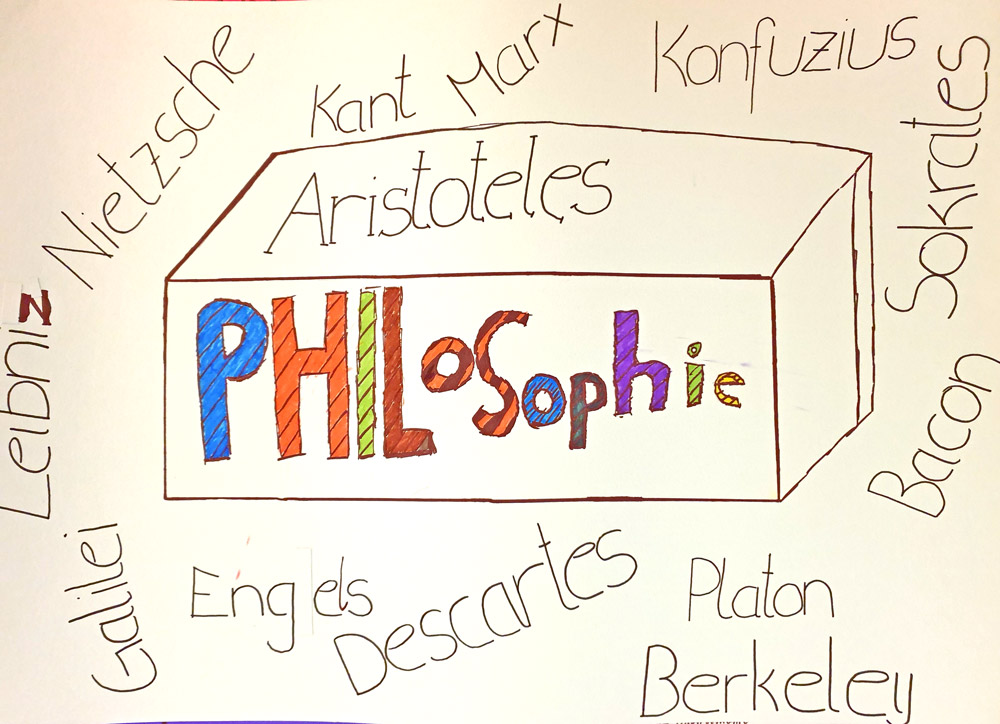 Nietzsche
Kant
Marx
Konfuzius
Sokrates
Aristoteles
PHILoSophie
Leibniz
Bacon
Galilei
Engels
Descartes
Platon
Berkeley